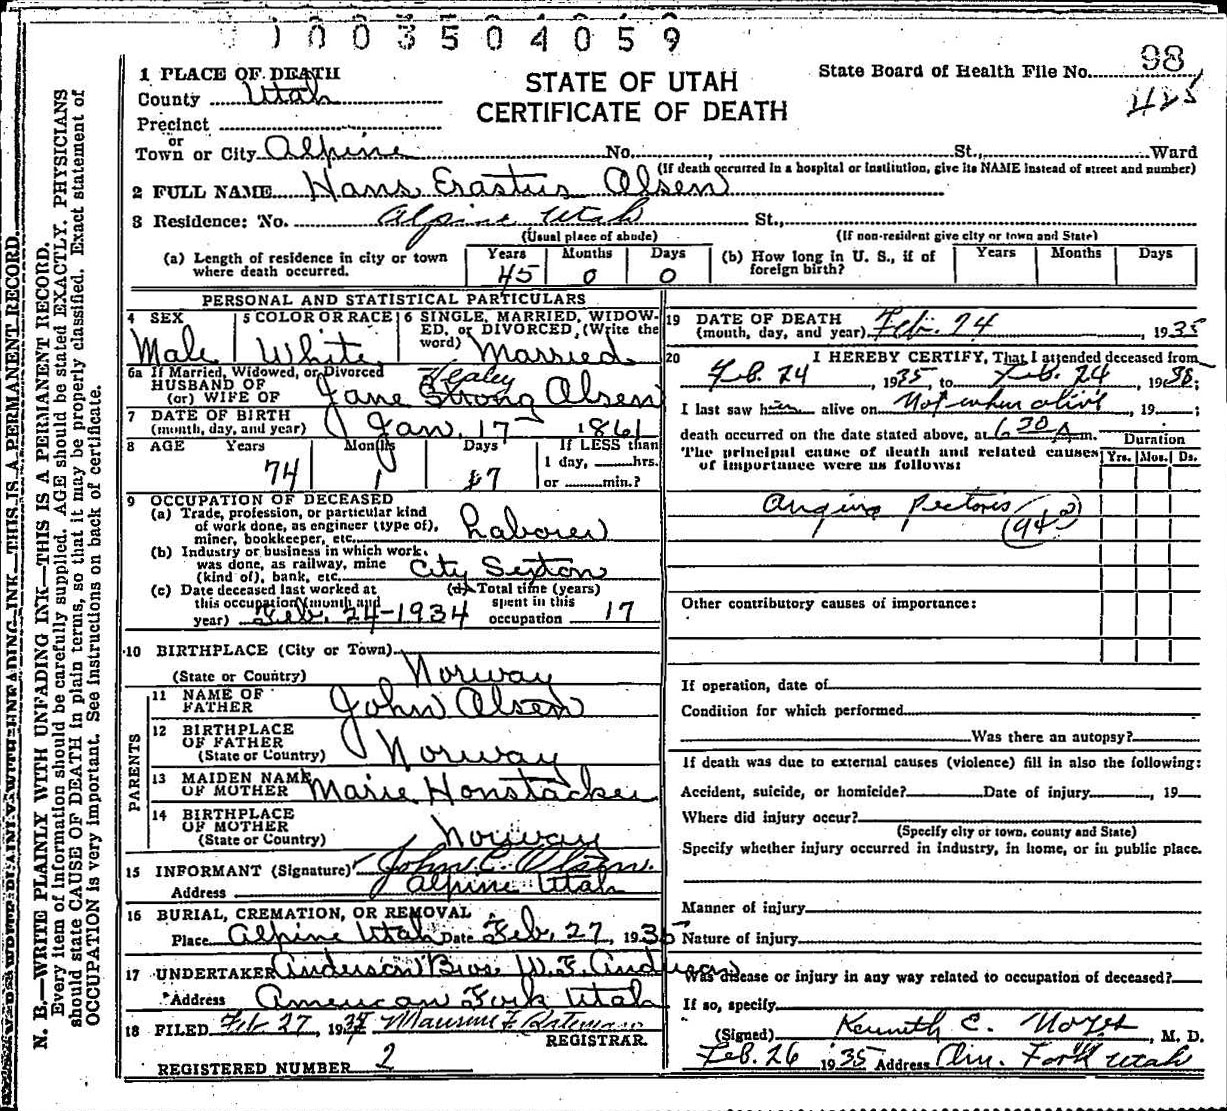 1003504059
STATE OF UTAH
CERTIFICATE OF DEATH
State Board of Health File No. 98
425
1 PLACE OF DEATH
County Utah
Precinct
or
Town or City Alpine No. , St., Ward
(If death occurred in a hospital or institution, give its NAME instead of street and number)
2 FULL NAME Hans Erastus Olsen
3 Residence: No. Alpine Utah St.,
(Usual place of abode) (If non-resident give city or town and State)
(a) Length of residence in city or town where death occurred. Years 45 Months 0 Days 0
(b) How long in U. S., if of foreign birth? Years Months Days
PERSONAL AND STATISTICAL PARTICULARS
4 SEX Male
5 COLOR OR RACE White
6 SINGLE, MARRIED, WIDOWED, or DIVORCED, (Write the word) Married
6a If Married, Widowed, or Divorced
HUSBAND OF
(or) WIFE OF Jane Strong Olsen
Healey
7 DATE OF BIRTH
(month, day, and year) Jan. 17 1861
8 AGE Years 74 Months 1 Days 7
If LESS than
1 day, hrs.
or min.?
9 OCCUPATION OF DECEASED
(a) Trade, profession, or particular kind
of work done, as engineer (type of),
miner, bookkeeper, etc. Laborer
(b) Industry or business in which work
was done, as railway, mine
(kind of), bank, etc. City Sexton
(c) Date deceased last worked at
this occupation (month and
year) Feb. 24-1934
(d) Total time (years)
spent in this
occupation 17
10 BIRTHPLACE (City or Town)
(State or Country) Norway
PARENTS
11 NAME OF
FATHER John Olsen
12 BIRTHPLACE
OF FATHER
(State or Country) Norway
13 MAIDEN NAME
OF MOTHER Marie Honstacker
14 BIRTHPLACE
OF MOTHER
(State or Country) Norway
15 INFORMANT (Signature) John E. Olsen.
Address Alpine Utah
16 BURIAL, CREMATION, OR REMOVAL
Place Alpine Utah Date Feb. 27, 1935
17 UNDERTAKER Anderson Bros W. F. Anderson
Address American Fork Utah
18 FILED Feb 27, 19 Maurine F. Bateman
REGISTRAR
REGISTERED NUMBER 2
19 DATE OF DEATH
(month, day, and year) Feb. 24 , 1935
20 I HEREBY CERTIFY, That I attended deceased from
Feb. 24 , 1935, to Feb. 24 , 1935;
I last saw him alive on Not when alive , 19 ;
death occurred on the date stated above, at 630 A m.
The principal cause of death and related causes
of importance were as follows:
Duration
Yrs. Mos. Ds.
Angina Pectoris
(94
Other contributory causes of importance:
If operation, date of
Condition for which performed
Was there an autopsy?
If death was due to external causes (violence) fill in also the following:
Accident, suicide, or homicide? Date of injury , 19
Where did injury occur?
(Specify city or town, county and State)
Specify whether injury occurred in industry, in home, or in public place.
Manner of injury
Nature of injury
Was disease or injury in any way related to occupation of deceased?
If so, specify
(Signed) Kenneth E. Noyes , M. D.
Feb. 26 1935 Address Am. Fork Utah
N. B.—WRITE PLAINLY WITH UNFADING INK—THIS IS A PERMANENT RECORD.
Every item of information should be carefully supplied. AGE should be stated EXACTLY. PHYSICIANS
should state CAUSE OF DEATH in plain terms, so that it may be properly classified. Exact statement of
OCCUPATION is very important. See instructions on back of certificate.